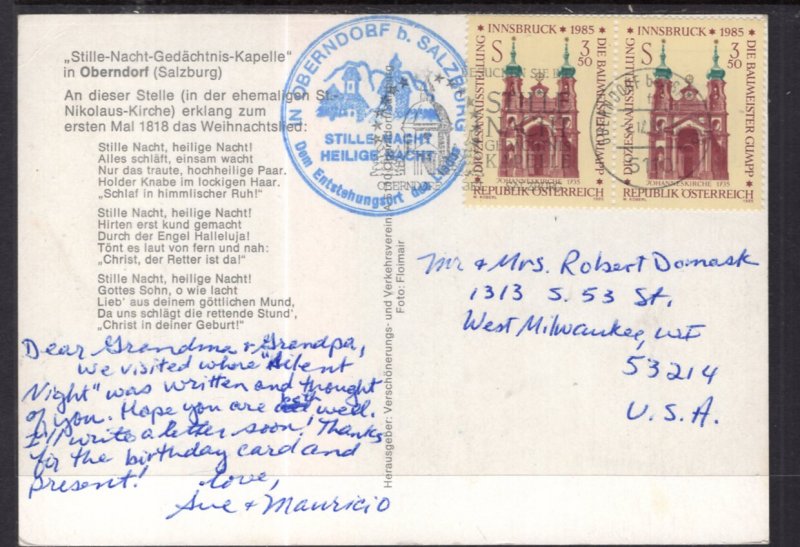 „Stille-Nacht-Gedächtnis-Kapelle"
in Oberndorf (Salzburg)
An dieser Stelle (in der ehemaligen St.-
Nikolaus-Kirche) erklang zum
ersten Mal 1818 das Weihnachtslied:
Stille Nacht, heilige Nacht!
Alles schläft, einsam wacht
Nur das traute, hochheilige Paar.
Holder Knabe im lockigen Haar.
„Schlaf in himmlischer Ruh!"
Stille Nacht, heilige Nacht!
Hirten erst kund gemacht
Durch der Engel Halleluja!
Tönt es laut von fern und nah:
„Christ, der Retter ist da!"
Stille Nacht, heilige Nacht!
Gottes Sohn, o wie lacht
Lieb' aus deinem göttlichen Mund,
Da uns schlägt die rettende Stund',
„Christ in deiner Geburt!"
Dear Grandma + Grandpa,
We visited where "Silent
Night" was written and thought
of you. Hope you are well.
I'll write a letter soon! Thanks
for the birthday card and
present!
Love,
Sue + Mauricio
Herausgeber: Verschönerungs- und Verkehrsverein
Foto: Floimair
IN OBERNDORF b. SALZBURG
STILLE NACHT
HEILIGE NACHT
Dem Entstehungsort des Liedes
BESUCHEN SIE DIE
STILLE
NACHT
GEDÄCHTNIS
KAPELLE
OBERNDORF
5110
INNSBRUCK 1985
S 3 50
DIÖZESANAUSSTELLUNG
DIE BAUMEISTER GUMPP
JOHANNESKIRCHE 1735
REPUBLIK ÖSTERREICH
INNSBRUCK 1985
S 3 50
DIÖZESANAUSSTELLUNG
DIE BAUMEISTER GUMPP
JOHANNESKIRCHE 1735
REPUBLIK ÖSTERREICH
Mr + Mrs. Robert Domask
1313 S. 53 St.
West Milwaukee, WI
53214
U.S.A.